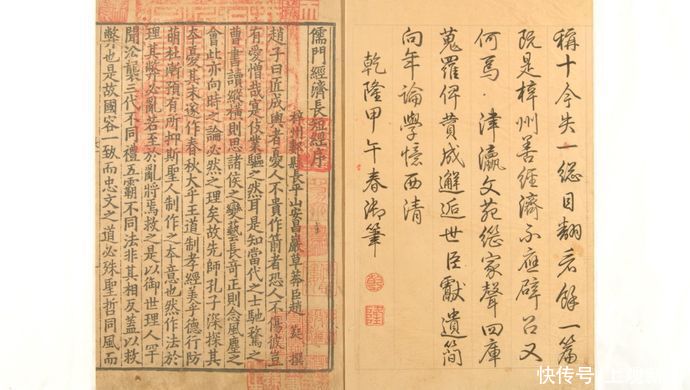 稱十今失一總目翻看餘一篇
既是梓州善經濟不應辟召又
何焉津瀛文苑繼家聲四庫
蒐羅俾費成邂逅世臣獻遺簡
向年論學憶西清
乾隆甲午春御筆
儒門經濟長短經序
梓州郪縣長平山安昌巖草莽臣趙蕤撰
趙子曰匠成輿者憂人不貴作箭者恐人不傷彼豈
有愛憎哉寔伎業驅之然耳是知當代之士馳騖之
曹書讀縱橫則思諸侯之變藝長奇正則念風塵之
會此亦向時之論必然之理矣故先師孔子深探其
本憂其末遂作春秋大乎王道制孝經美乎德行防
萌杜漸預有所抑斯聖人制作之本意也然作法於
理其弊必亂若至於亂將焉救之是以御世理人罕
聞沿襲三代不同禮五霸不同法非其相反蓋以救
弊也是故國容一致而忠文之道必殊聖哲同風而
快传号/上观新闻